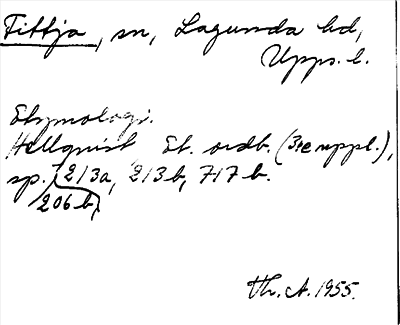 Tibbja, sn, Lagunda hd,
Upps. l.
Etymologi.
Hellquist, Et. ordb. (3:e uppl.),
sp. 213a, 213b, 717b.
206b,
Th. A. 1955.